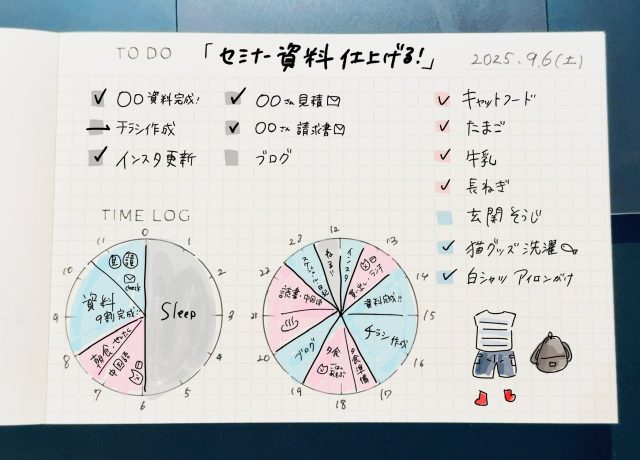 TO DO 「セミナー資料仕上げる!」 2025.9.6(土)
〇〇資料完成!
チラシ作成
インスタ更新
〇〇さん見積
〇〇さん請求書
ブログ
キャットフード
たまご
牛乳
長ねぎ
玄関そうじ
猫グッズ洗濯
白シャツ アイロンがけ
TIME LOG
0
1
2
3
4
5
6
7
8
9
10
11
Sleep
見 請
check
資料
9割完成!
朝食・
中国語
12
13
14
15
16
17
18
19
20
21
22
23
インスタ
買い出し・ランチ
資料完成!!
チラシ作成
夕食準備
夕食
ブログ
読書・中国語
ねる!!